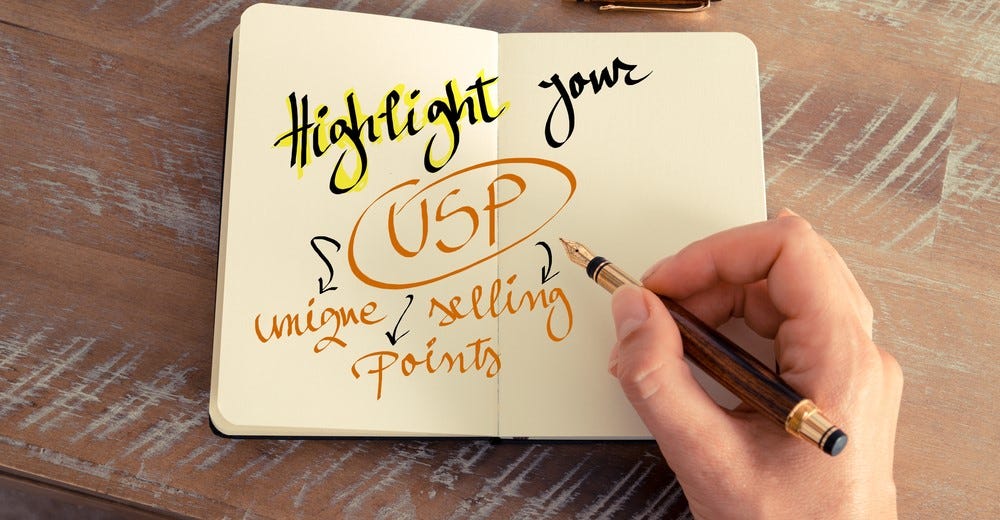 Highlight your
USP
unique selling
Points